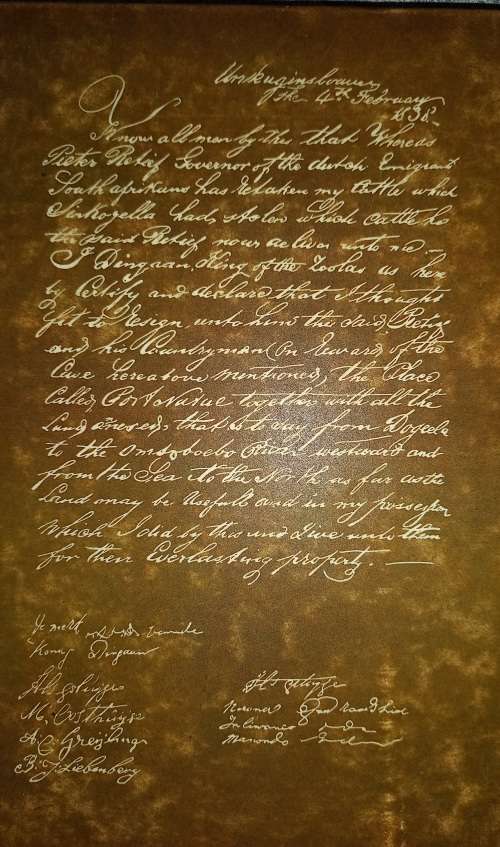 Umkuginsloave
the 4th February
1838
Know all men by this that Whereas
Pieter Retief Governor of the dutch Emigrant
South afrikans has Retaken my Cattle which
Sinkogella had stolen which cattle he
the said Retief now deliver unto me —
I Dingaan, King of the Zoolas as here
by Certify and declare that I thought
fit to Resign unto him the said Retief
and his Countrymen (on Reward of the
Case hereabove mentioned) the Place
Called Port Natal together with all the
Land annexed, that is to say from Dogeela
to the Omsoboebo River westward and
from the Sea to the North as far as the
Land may be Usefull and in my possession
Which I did by this and Give unto them
for their Everlasting property. —
De merk
Konig Dingaan
M. Oosthuyse
A. C. Greyling
B. J. Liebenberg
Nwara Great Raadslid
Juliwanes do
Manondo do